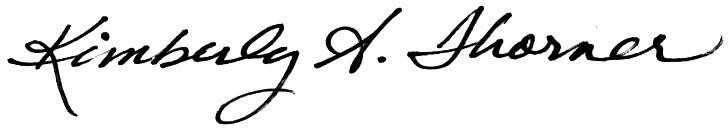 Kimberly A. Thorner